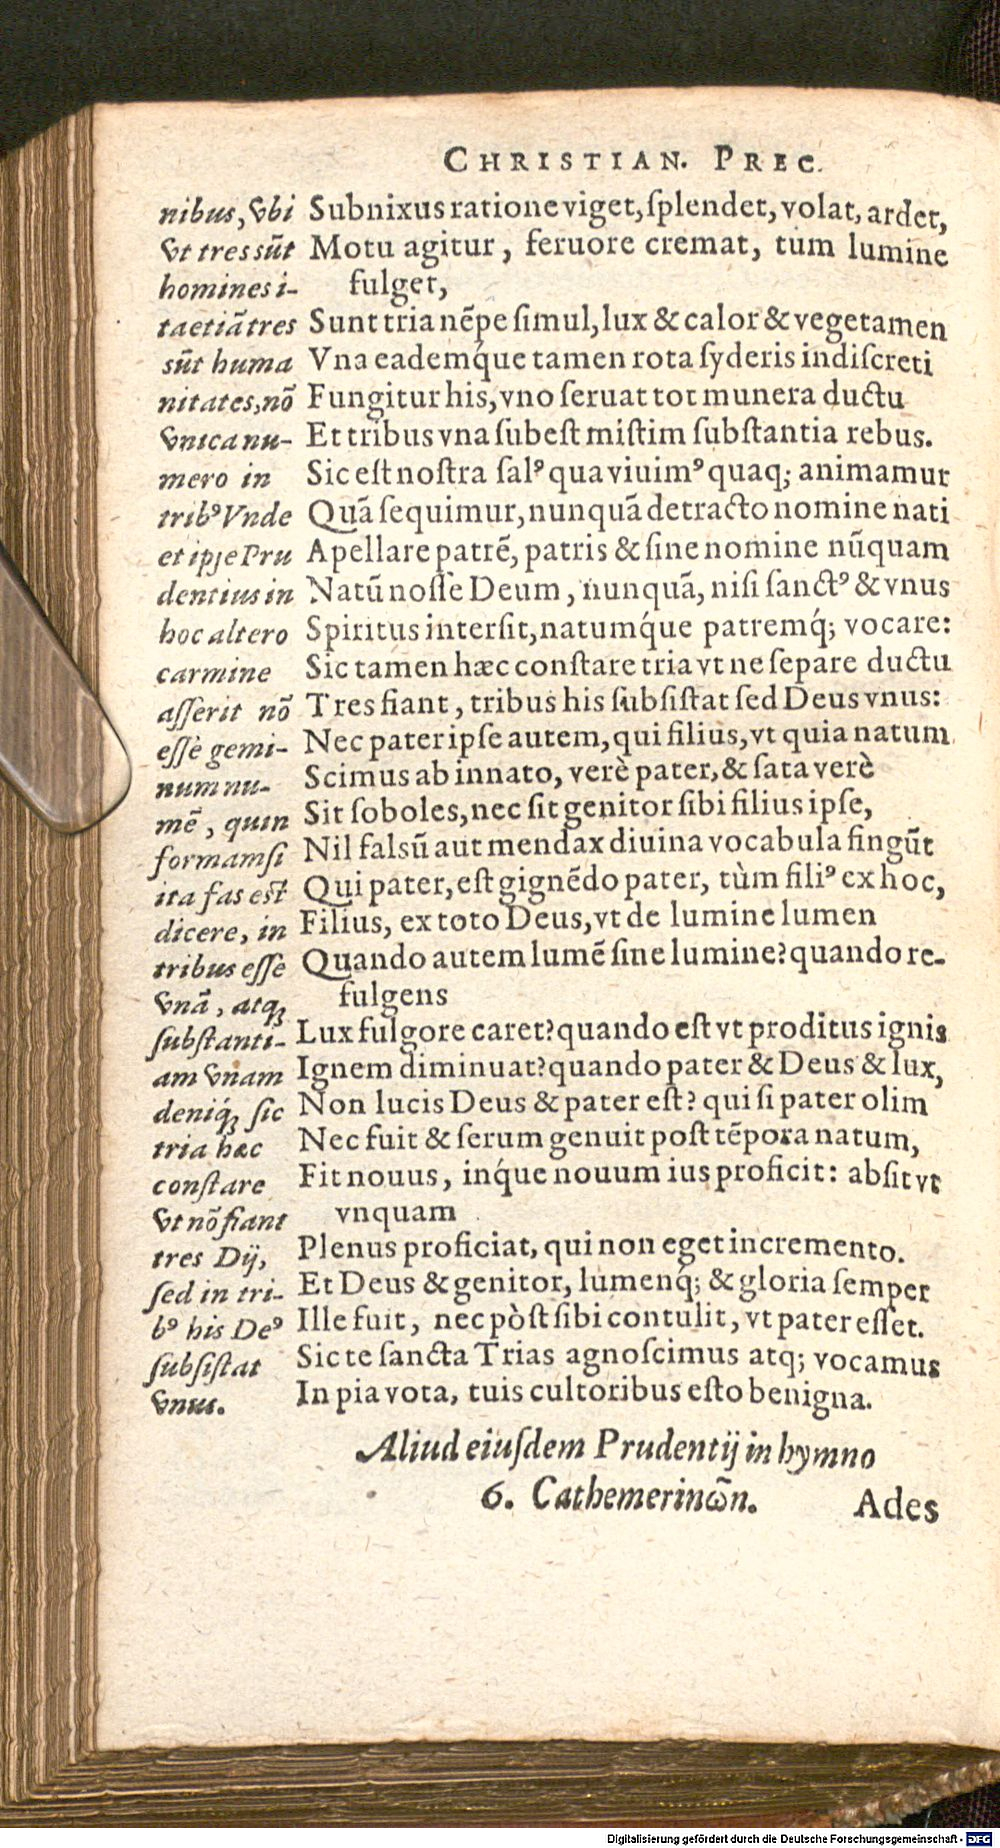 CHRISTIAN. PREC.
nibus, vbi
vt tres sūt
homines i-
ta etiā tres
sūt huma
nitates, nō
vnica nu-
mero in
tribꝰ Vnde
et ipſe Pru
dentius in
hoc altero
carmine
aſſerit nō
eſſe gemi-
num nu-
mē, quin
formam ſi
ita fas eſt
dicere, in
tribus eſſe
vnā, atq;
ſubſtanti-
am vnam
deniq́; ſic
tria hæc
conſtare
vt nō fiant
tres Dij,
ſed in tri-
bꝰ his Deꝰ
ſubſiſtat
vnus.
Subnixus ratione viget, ſplendet, volat, ardet,
Motu agitur, feruore cremat, tum lumine
fulget,
Sunt tria nēpe ſimul, lux & calor & vegetamen
Vna eademq́ue tamen rota ſyderis indiſcreti
Fungitur his, vno ſeruat tot munera ductu
Et tribus vna ſubeſt miſtim ſubſtantia rebus.
Sic eſt noſtra ſalꝰ qua viuimꝰ quaq; animamur
Quā ſequimur, nunquā detracto nomine nati
Apellare patrē, patris & ſine nomine nūquam
Natū noſſe Deum, nunquā, niſi ſanctꝰ & vnus
Spiritus interſit, natumq́ue patremq́; vocare:
Sic tamen hæc conſtare tria vt ne ſepare ductu
Tres fiant, tribus his ſubſiſtat ſed Deus vnus:
Nec pater ipſe autem, qui filius, vt quia natum
Scimus ab innato, verè pater, & ſata verè
Sit ſoboles, nec ſit genitor ſibi filius ipſe,
Nil falsū aut mendax diuina vocabula fingūt
Qui pater, eſt gignēdo pater, tùm filiꝰ ex hoc,
Filius, ex toto Deus, vt de lumine lumen
Quando autem lumē ſine lumine? quando re-
fulgens
Lux fulgore caret? quando eſt vt proditus ignis
Ignem diminuat? quando pater & Deus & lux,
Non lucis Deus & pater eſt? qui ſi pater olim
Nec fuit & ſerum genuit poſt tēpora natum,
Fit nouus, inq́ue nouum ius proficit: abſit vt
vnquam
Plenus proficiat, qui non eget incremento.
Et Deus & genitor, lumenq́; & gloria ſemper
Ille fuit, nec pòſt ſibi contulit, vt pater eſſet.
Sic te ſancta Trias agnoſcimus atq; vocamus
In pia vota, tuis cultoribus eſto benigna.
Aliud eiuſdem Prudentij in hymno
6. Cathemerinω̃n.
Ades
Digitalisierung gefördert durch die Deutsche Forschungsgemeinschaft - DFG